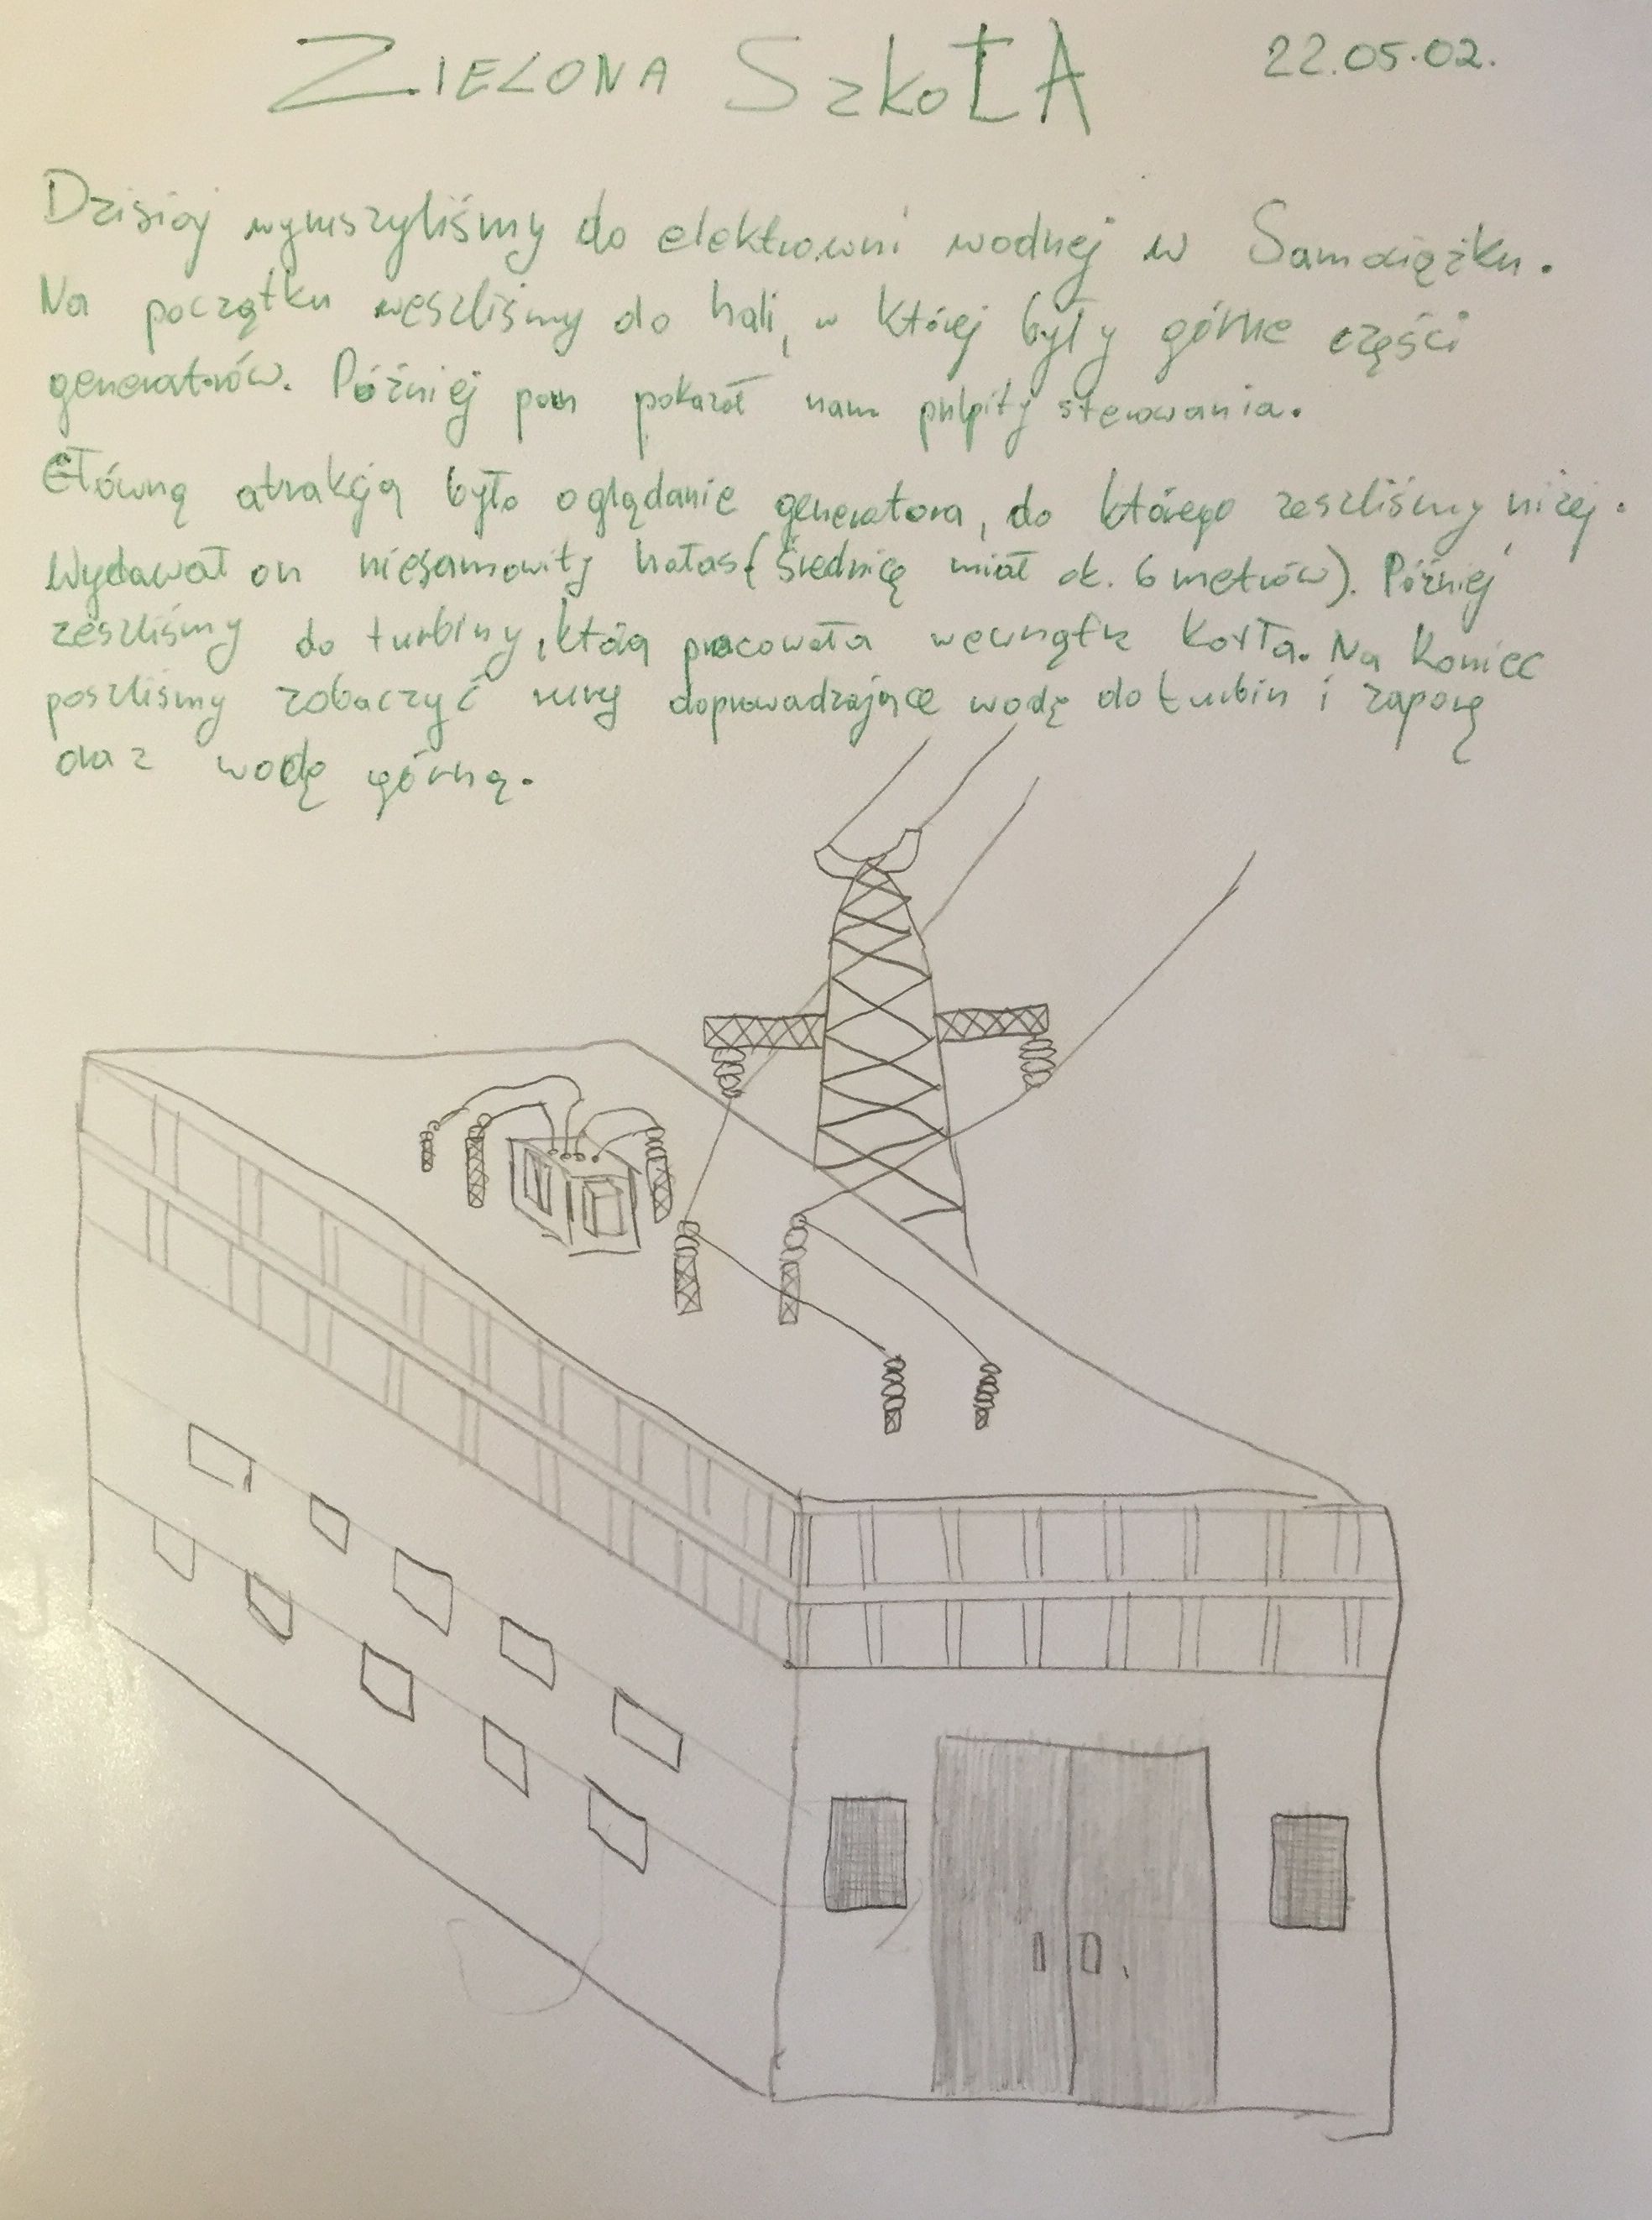 ZIELONA SZKOŁA 22.05.02.
Dzisiaj wyruszyliśmy do elektrowni wodnej w Samociążku.
Na początku weszliśmy do hali, w której były górne części
generatorów. Później pan pokazał nam pulpity sterowania.
Główną atrakcją było oglądanie generatora, do którego zeszliśmy niżej.
Wydawał on niesamowity hałas (średnicę miał ok. 6 metrów). Później
zeszliśmy do turbiny, którą pracowała wewnątrz kotła. Na koniec
poszliśmy zobaczyć rury doprowadzające wodę do turbin i zaporę
oraz wodę górną.